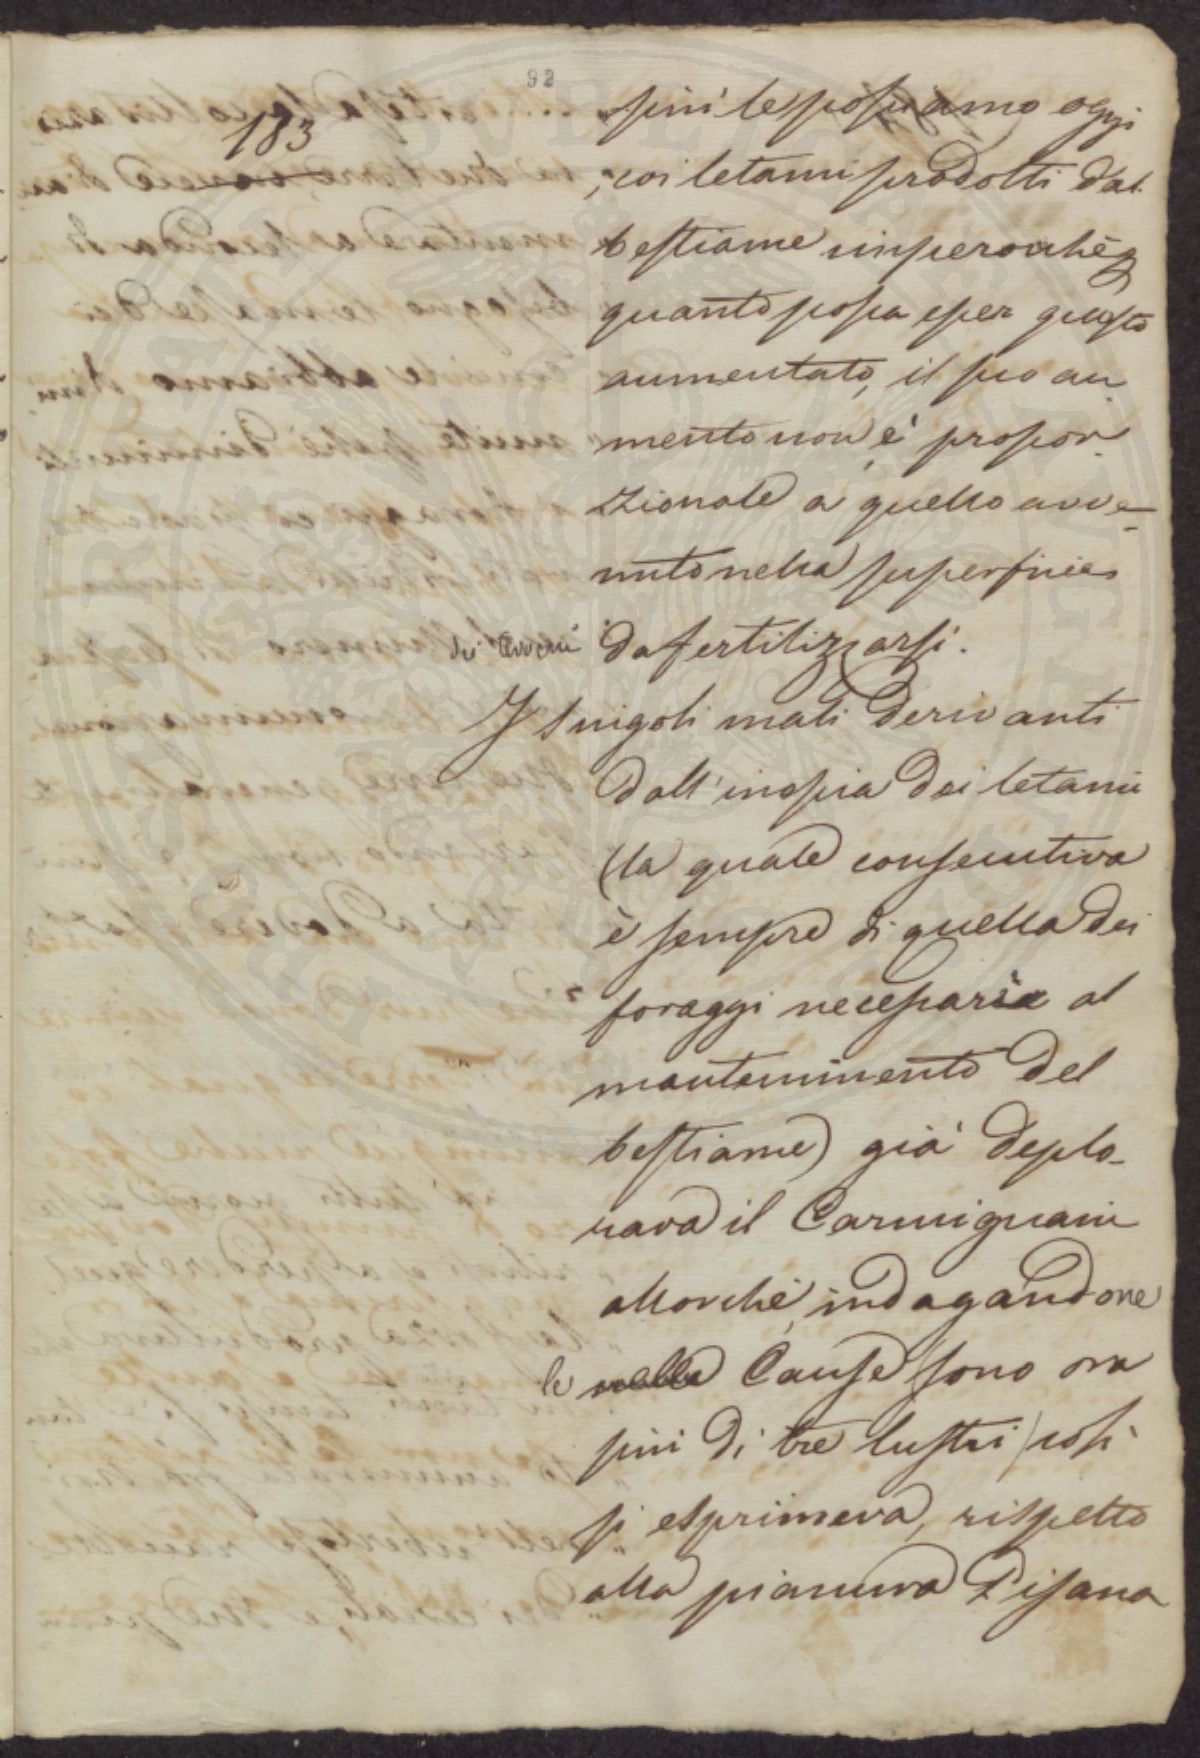 92
183
più le possiamo oggi
coi letami prodotti dal
bestiame imperocchè
quanto possa esser questo
aumentato, il suo au
mento non è propor
zionale a quello avve-
nuto nella superficie
dei terreni da fertilizzarsi.
I singoli mali derivanti
dall'inopia dei letami
(la quale consecutiva
è sempre di quella dei
foraggi necessari al
mantenimento del
bestiame) già deplo-
rava il Carmignani
allorchè, indagandone
le cause sono ora
più di tre lustri, così
si esprimeva, rispetto
alla pianura Pisana